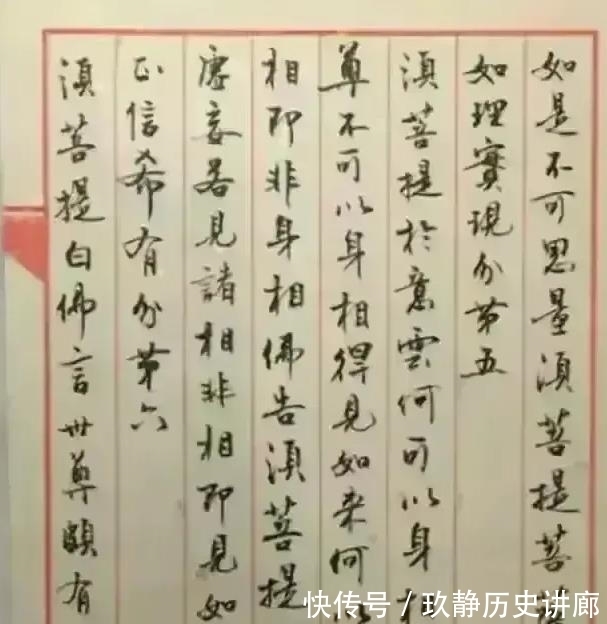 如是不可思量須菩提菩
如理實現分第五
須菩提於意雲何可以身相
尊不可以身相得見如来何以
相即非身相佛告須菩提
虛妄若見諸相非相即見如
正信希有分第六
須菩提白佛言世尊頗有
快传号／玖静历史讲廊